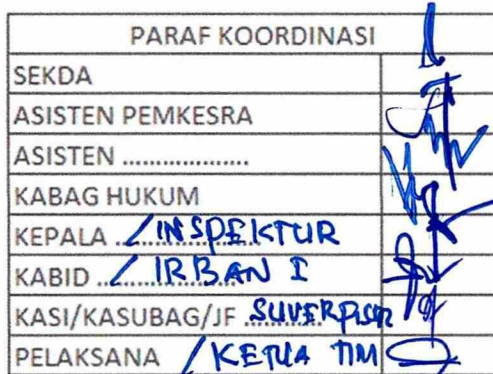 PARAF KOORDINASI
SEKDA
ASISTEN PEMKESRA
ASISTEN ...................
KABAG HUKUM
KEPALA ...................... / INSPEKTUR
KABID ...................... / IRBAN I
KASI/KASUBAG/JF ............ SUVERPISOR
PELAKSANA / KETUA TIM